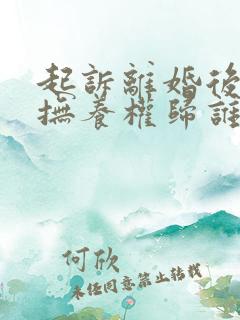 起訴離婚後
撫養權歸誰
何欣
未经同意禁止转载